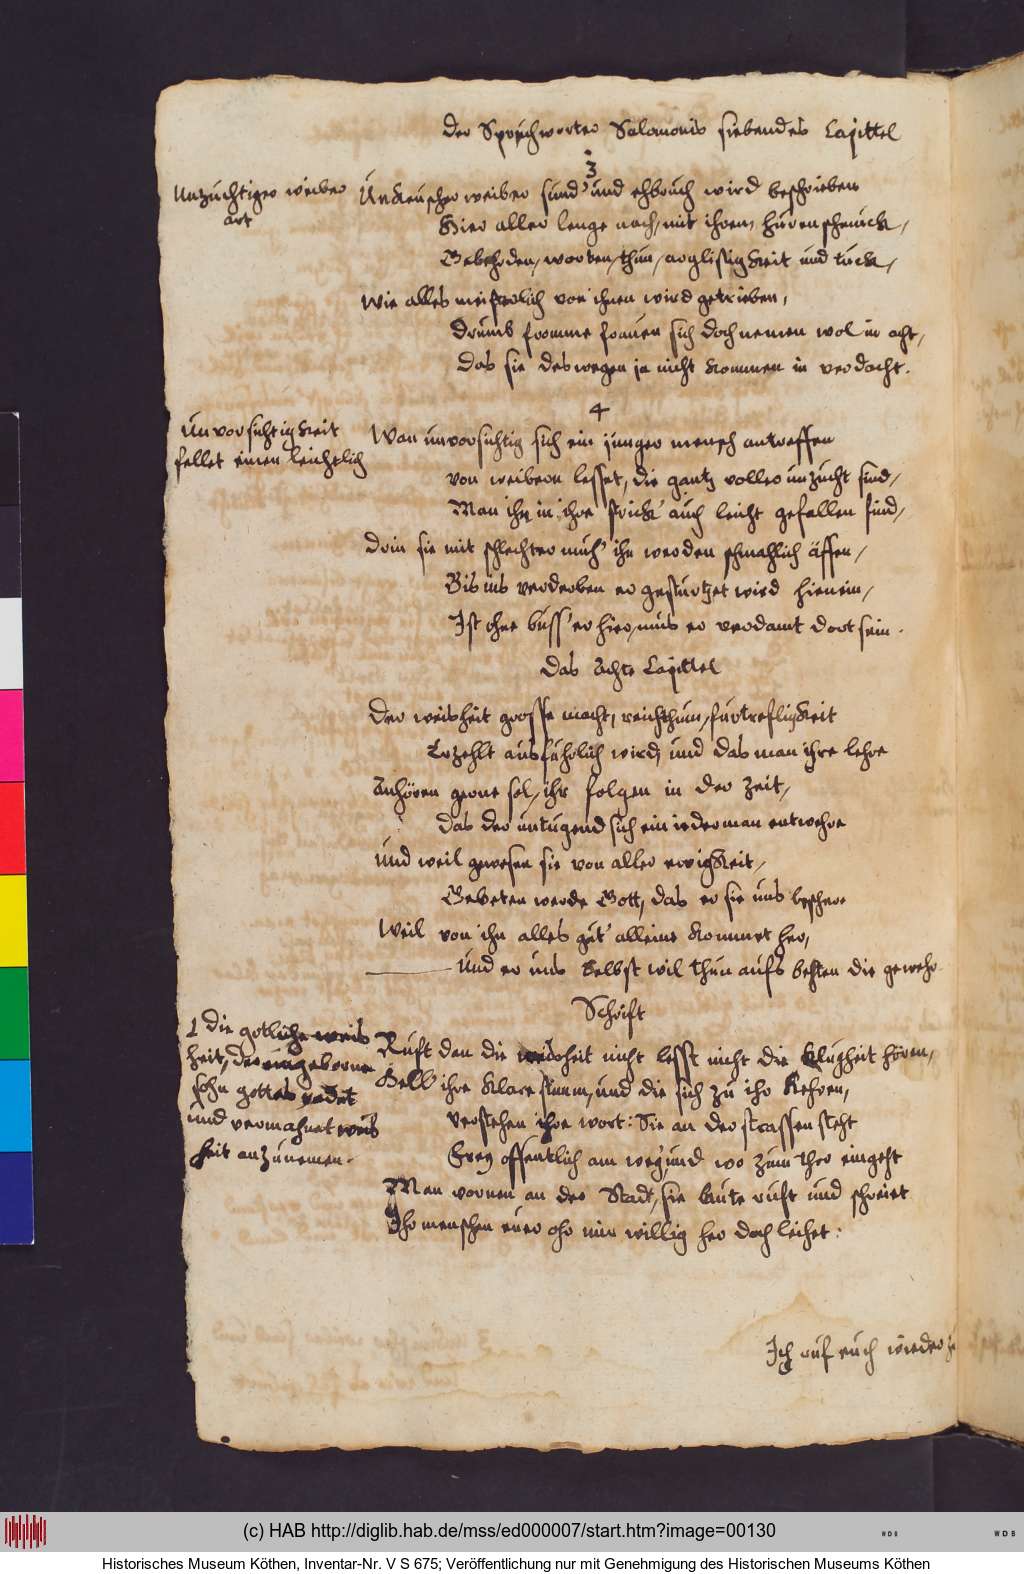 Der Sprüchworter Salomonis siebendes Capittel
3
Unzüchtiger weiber
art
Unkeuscher weiber sünd' und ehbruch wird beschrieben
Hier aller lenge nach, mit ihrem hurenschmuck,
Geberden, worten, thun, arglistigkeit und tück,
Wie alles meisterlich von ihnen wird getrieben,
Drumb fromme frauen sich doch nemen wol in acht,
Das sie deswegen ja nicht kommen in verdacht.
4
Unvorsichtigkeit
fellet einen leichtlich
Wan unvorsichtig sich ein junger mensch antreffen
von weibern lesset, die gantz voller unzucht sind,
Man ihn in ihre strick' auch leicht gefallen find,
Drin sie mit schlechter müh' ihn werden schmahlich äffen,
Bis ins verderben er gesturtzet wird hienein,
Ist ohne buss' er hier, mus er verdamt dort sein.
Das Achte Capittel
Der weisheit grosse macht, reichthum, fürtrefligkeit
Erzehlt ausfuhrlich wird, und das man ihre lehre
Anhören gerne sol, ihr folgen in der zeit,
Das der untugend sich ein iederman entwehre
Und weil gewesen sie von aller ewigkeit,
Gebeten werde Gott, das er sie uns beschere
Weil von ihm alles gut' alleine kommet her,
Und er uns selbst wil thun aufs besten die gewehr.
Schrift
1 Die gotliche weis
heit, der eingeborne
sohn gottes redet
und vermahnet weis
heit anzunemen.
Ruft den die weisheit nicht lesst nicht die klugheit hören,
Hell' ihre klare stimm, und die sich zu ihr kehren,
verstehen ihre wort: Sie an der strassen steht
Frey offentlich am weg, und wo zum thor eingeht
Man vornen an der Stadt, sie laute ruft und schreiet
Ihr menschen euer ohr mir willig her doch leihet:
Ich ruf euch wieder
(c) HAB http://diglib.hab.de/mss/ed000007/start.htm?image=00130
WDB
WDB
Historisches Museum Köthen, Inventar-Nr. V S 675; Veröffentlichung nur mit Genehmigung des Historischen Museums Köthen